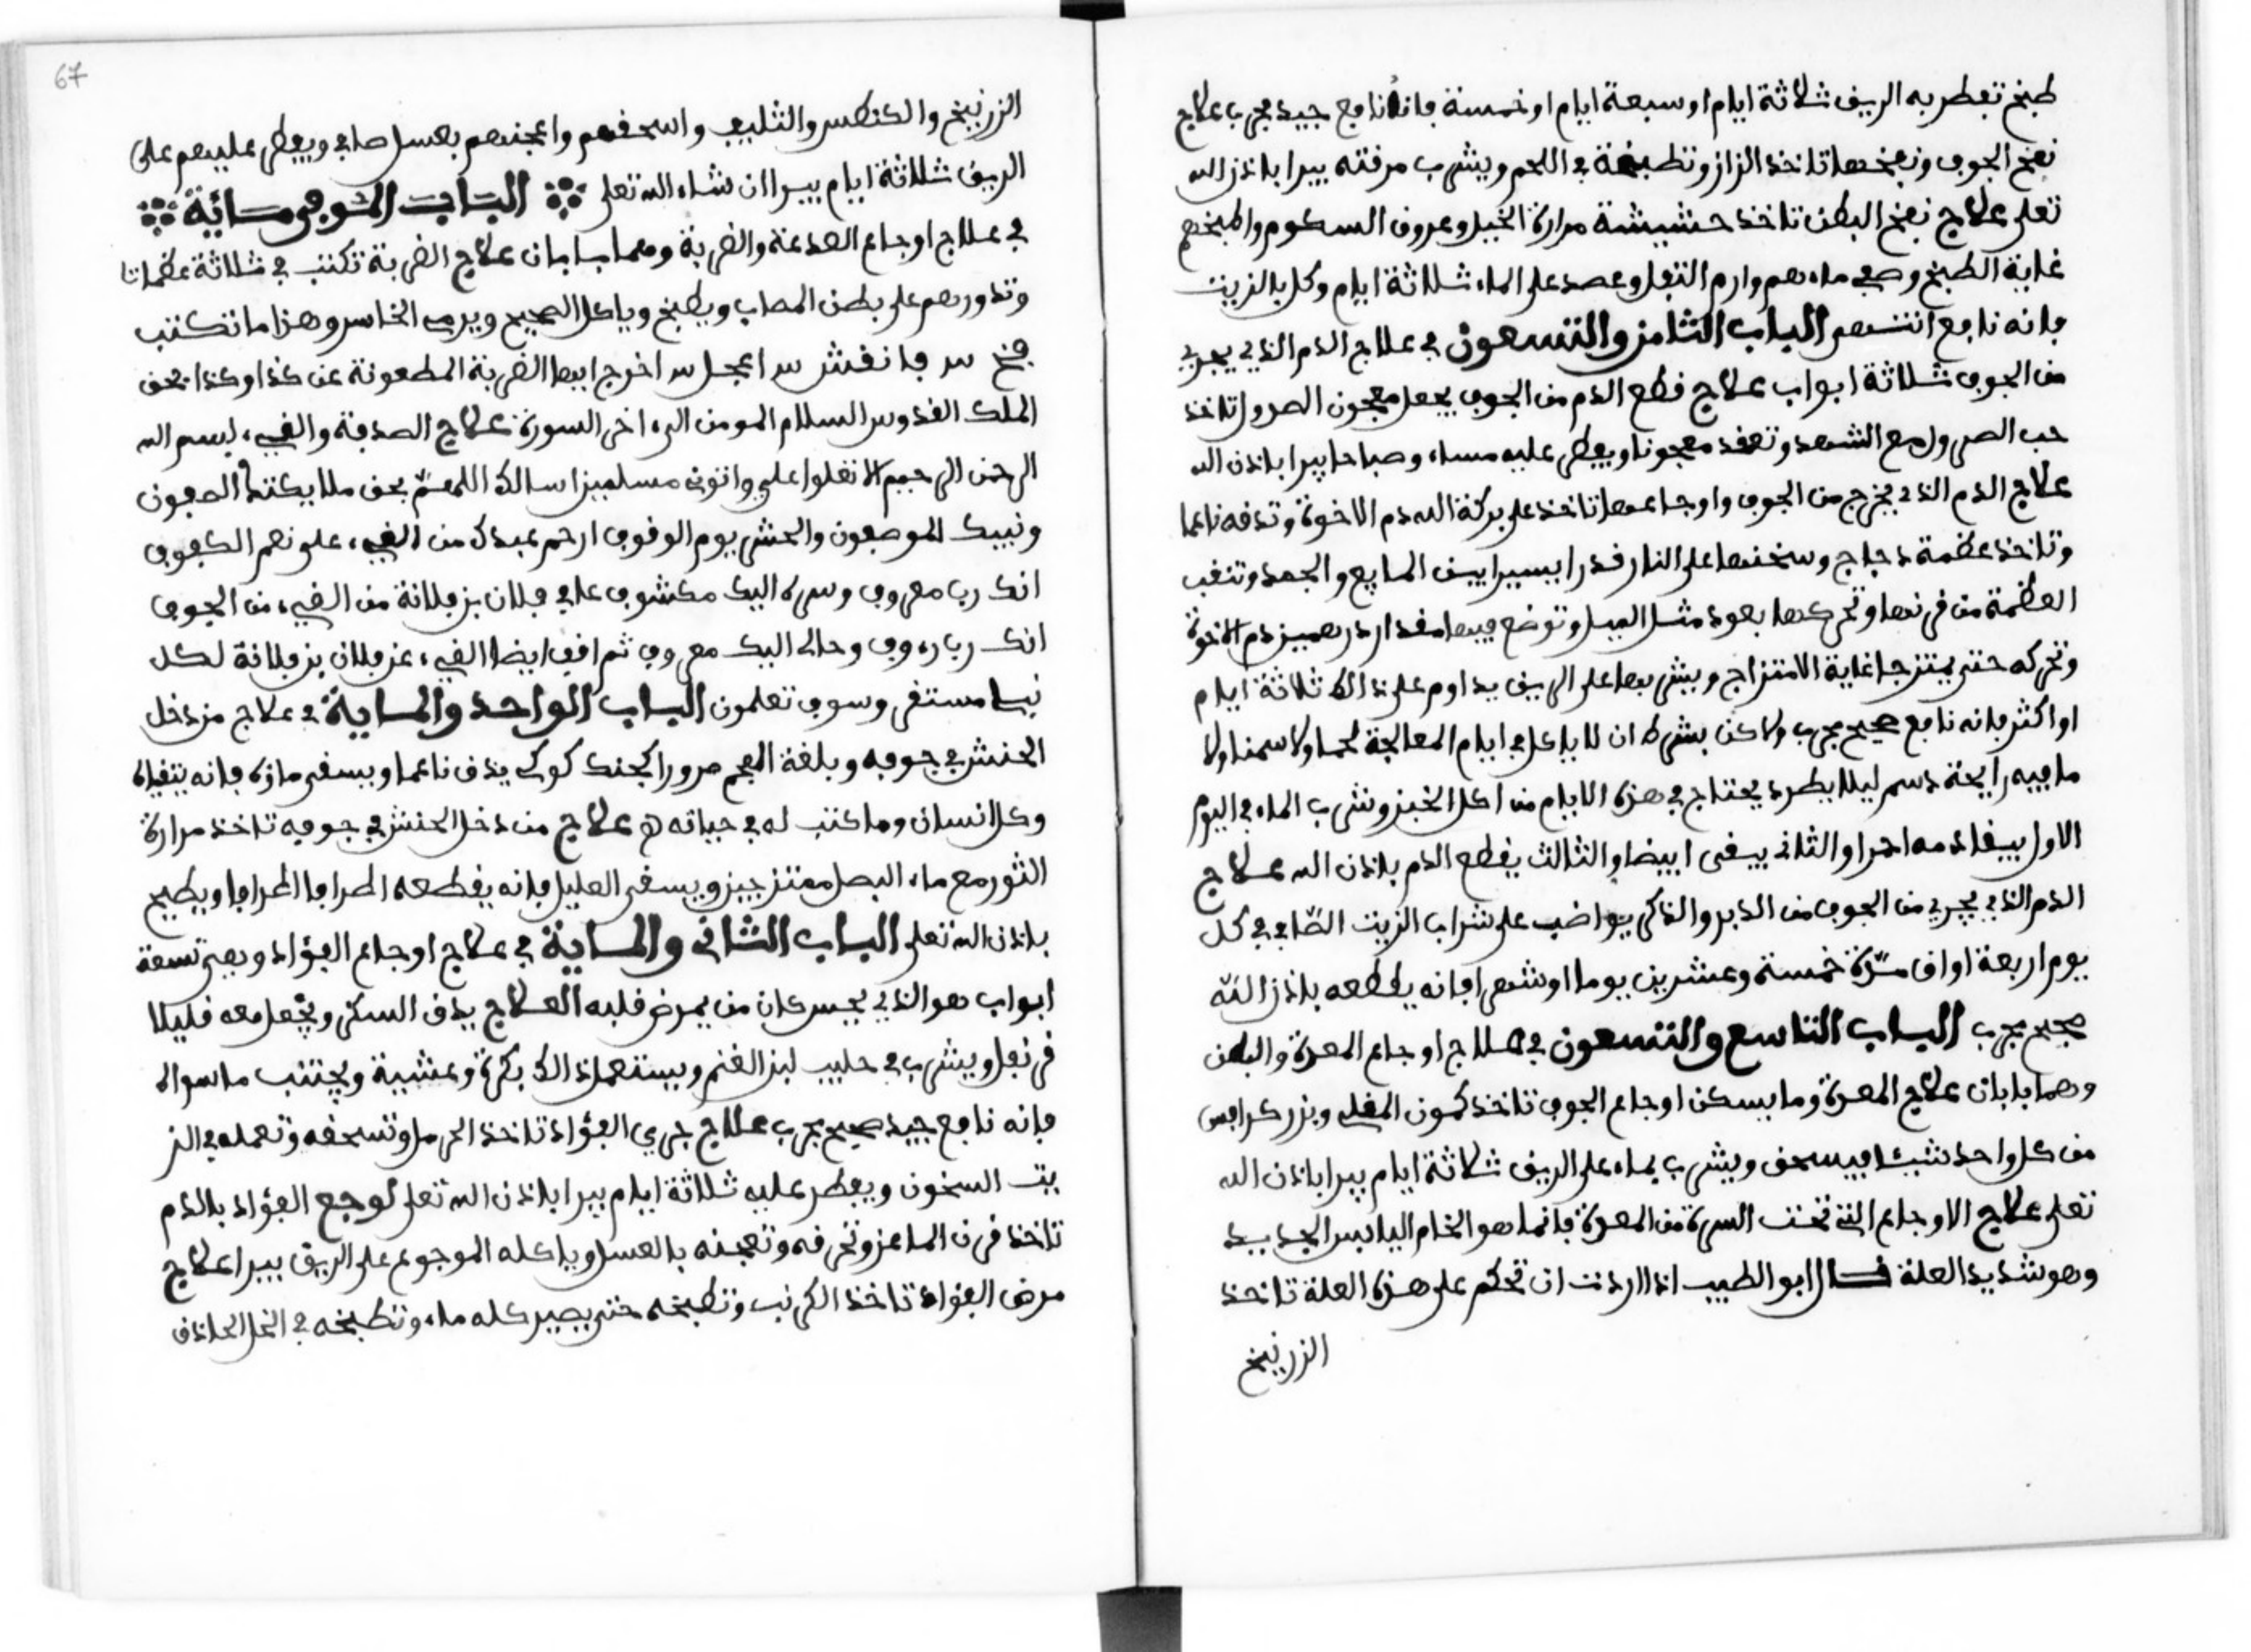 طبخ تفطر به الريف ثلاثة ايام او سبعة ايام او خمسة فانه نافع جيد مجرب علاج
نفخ الجوف ونفخها تاخذ الزاز وتطبخة في اللحم ويشرب مرقته يبرا باذن الله
تعلى علاج نفخ البطن تاخذ حشيشة مرارة الخيل وعروق السكوم واطبخهم
غاية الطبخ وصفي ماءهم وارم التفل وعصد على الماء ثلاثة ايام وكل بالزيت
فانه نافع انتهى الباب الثامن والتسعون في علاج الدم الذي يجري
من الجوف ثلاثة ابواب علاج قطع الدم من الجوف يجعل معجون الصرول تاخذ
حب الصرول مع الشهد وتعقد معجونا ويفطر عليه مساء وصباحا يبرا باذن الله
علاج الدم الذي يخرج من الجوف واوجاعها تاخذ على بركة الله دم الاخوة وتدقه ناعما
وتاخذ عظمة دجاج وسخنها على النار قدرا يسيرا بين المايع والجمد وتنقب
العظمة من قرنها وتحركها بعود مثل الميل وتوضع فيها مقدار درهمين دم الاخوة
وتحركه حتى يمتزجا غاية الامتزاج ويشربها على الريق يداوم على ذالك ثلاثة ايام
او اكثر فانه نافع صحيح مجرب ولاكن بشرط ان لا ياكل في ايام المعالجة لحما ولا سمنا ولا
ما فيه رايحة دسم ليلا يطرد يحتاج في هذه الايام من اكل الخبز وشرب الماء في اليوم
الاول يبقا دمه احمر او الثاني يبقى ابيضا والثالث يقطع الدم باذن الله علاج
الدم الذي يجري من الجوف من الدبر والذكر يواضب على شراب الزيت الصافي في كل
يوم اربعة اواق مرة خمسة وعشرين يوما او شهرا فانه يقطعه باذن الله
صحيح مجرب الباب التاسع والتسعون في علاج اوجاع المعدة والبطن
وهما بابان علاج المعدة وما يسكن اوجاع الجوف تاخذ كمون المقلي وبزر كرافس
من كل واحد شيئا فيسحق ويشرب بماء على الريق ثلاثة ايام يبرا باذن الله
تعلى علاج الاوجاع التي تحت السرة من المعدة فانما هو الخام اليابس الجديد
وهو شديد العلة قال ابو الطبيب اذا اردت ان تحكم على هذه العلة تاخذ
الزرنيخ
67
الزرنيخ والكنطس والثليب واسحقهم واعجنهم بعسل صافي ويفطر عليهم على
الريق ثلاثة ايام يبرا ان شاء الله تعلى الباب الموفي مائة
في علاج اوجاع الصدعة والضربة وهما بابان علاج الضربة تكتب في ثلاثة عظمات
وتدورهم على بطن المصاب ويطبخ وياكل الصحيح ويرمي الخاسر وهذا ما تكتب
فخ سر فانفش سر اعجل سر اخرج ايها الضربة المطعونة عن كذا وكذا بحق
الملك القدوس السلام المومن الى اخر السورة علاج الصدفة والقيء بسم الله
الرحمن الرحيم الا تعلوا علي واتوني مسلمين اسالك اللهم بحق ملايكتك الصفون
ونبيك الموصفون والحشر يوم الوقوف ارحم عبدك من القيء على نعم الكفوف
انك ربا معروف وسره اليك مكشوف عافي فلان بن فلانة من القيء من الجوف
انك ربا رءوف وحالي اليك معروف ثم اقي ايضا القيء عن فلان بن فلانة لكل
نبا مستقر وسوف تعلمون الباب الواحد والماية في علاج من دخل
الحنش في جوفه وبلغة العجم مرورا كجند كوك يدق ناعما ويسقى مازه فانه يتقياه
وكل انسان وما كتب له في حياته علاج من دخل الحنش في جوفه تاخذ مرارة
الثور مع ماء البصل ممتزجين ويسقى العليل فانه يقطعه اطرافا اطرافا ويطيح
باذن الله تعلى الباب الثاني والماية في علاج اوجاع الفؤاد وهي تسعة
ابواب هو الذي يحبس كان من يمرض قلبه العلاج يدق السكر ويجعل معه قليلا
قرنفل ويشرب في حليب لبن الغنم ويستعمل ذالك بكرة وعشية ويجتنب ما سواه
فانه نافع جيد صحيح مجرب علاج جري الفؤاد تاخذ الحرمل وتسحقه وتعمله في الز
يت السخون ويفطر عليه ثلاثة ايام يبرا باذن الله تعلى لوجع الفؤاد بالدم
تاخذ قرن الماعز وتحرقه وتعجنه بالعسل وياكله الموجوع على الريق يبرا علاج
مرض الفؤاد تاخذ الكرنب وتطبخه حتى يصير كله ماء وتطبخه في الخل الحاذق